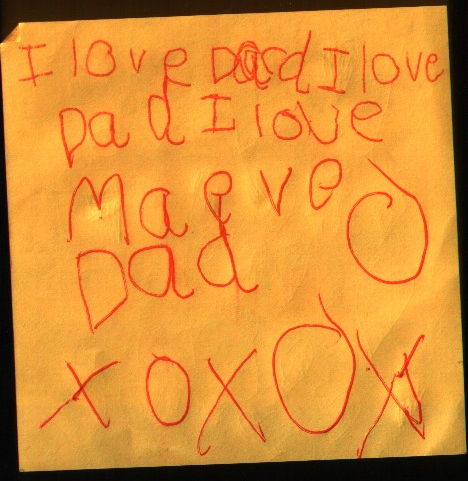 I love Dad I love
Dad I love
Maeve O
Dad
XOXOX